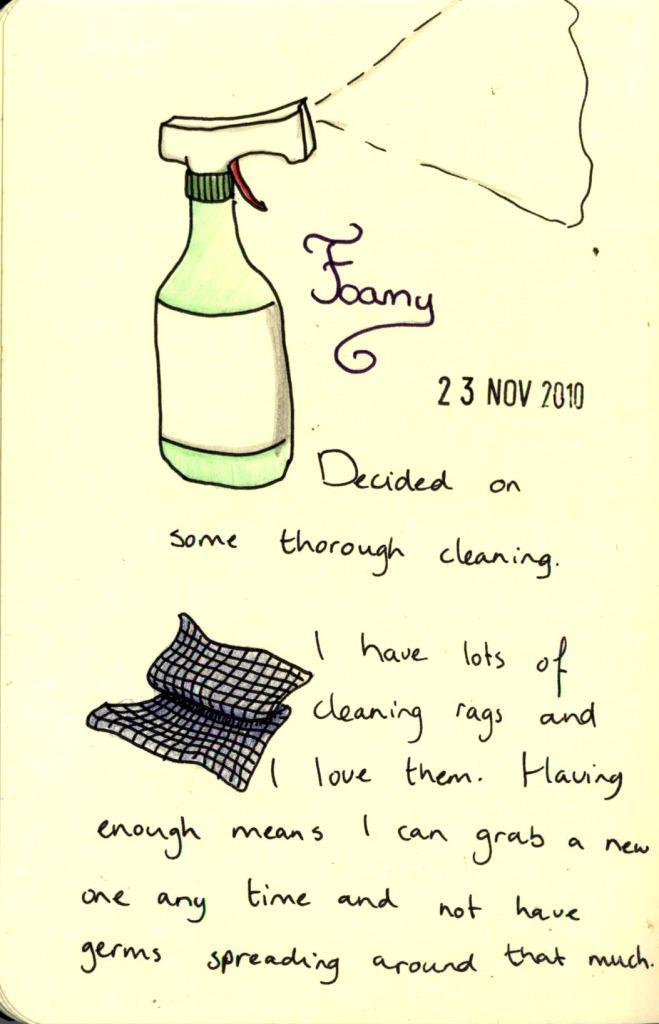 Foamy
23 NOV 2010
Decided on
some thorough cleaning.
I have lots of
cleaning rags and
I love them. Having
enough means I can grab a new
one any time and not have
germs spreading around that much.